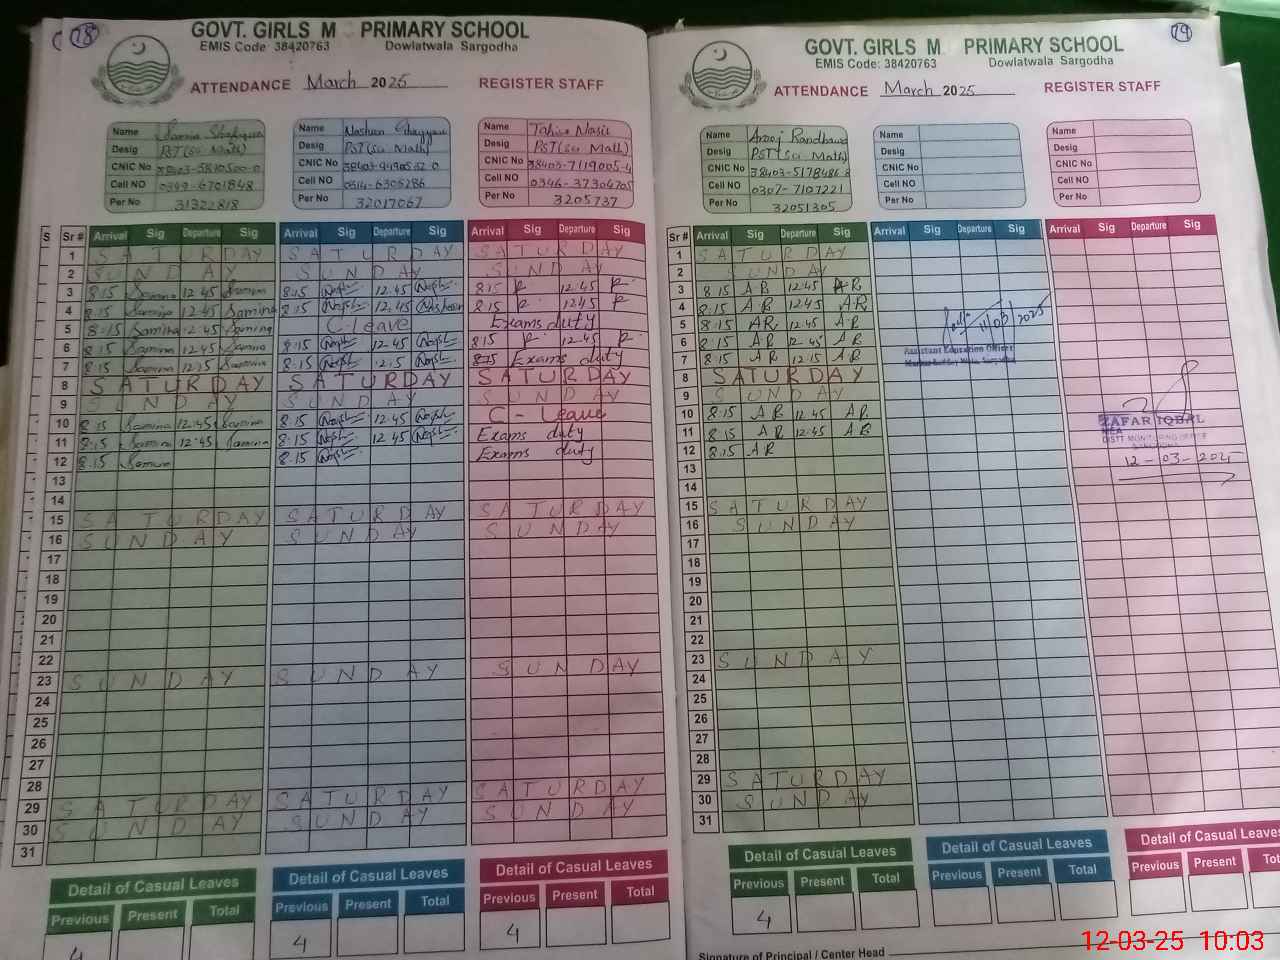 28
GOVT. GIRLS M PRIMARY SCHOOL
EMIS Code 38420763 Dowlatwala Sargodha
ATTENDANCE March 2025 REGISTER STAFF
Name
Desig PST(Sci Math)
CNIC No
Cell NO 0349-6701848
Per No 31322818
Name
Desig PST(Sci Math)
CNIC No
Cell NO 0314-6305286
Per No 32017067
Name
Desig PST(Sci Math)
CNIC No 38403-7119005-4
Cell NO 0346-37304705
Per No 3205737
Sr # Arrival Sig Departure Sig Arrival Sig Departure Sig Arrival Sig Departure Sig
1 SATURDAY SATURDAY SATURDAY
2 SUNDAY SUNDAY SUNDAY
3 8:15 Samina 12:45 Samina 8:15 12:45 8:15 12:45
4 8:15 Samina 12:45 Samina 8:15 12:45 8:15 12:45
5 8:15 Samina 12:45 Samina C-Leave Exams duty
6 8:15 Samina 12:45 Samina 8:15 12:45 8:15 12:45
7 8:15 Samina 12:15 Samina 8:15 12:15 Exams duty
8 SATURDAY SATURDAY SATURDAY
9 SUNDAY SUNDAY SUNDAY
10 8:15 Samina 12:45 Samina 8:15 12:45 C-Leave
11 8:15 Samina 12:45 Samina 8:15 12:45 Exams duty
12 8:15 Samina 8:15 Exams duty
13
14
15 SATURDAY SATURDAY SATURDAY
16 SUNDAY SUNDAY SUNDAY
17
18
19
20
21
22
23 SUNDAY SUNDAY SUNDAY
24
25
26
27
28
29 SATURDAY SATURDAY SATURDAY
30 SUNDAY SUNDAY SUNDAY
31
Detail of Casual Leaves Detail of Casual Leaves Detail of Casual Leaves
Previous Present Total Previous Present Total Previous Present Total
4 4 4
29
GOVT. GIRLS M PRIMARY SCHOOL
EMIS Code: 38420763 Dowlatwala Sargodha
ATTENDANCE March 2025 REGISTER STAFF
Name Arooj Randhawa
Desig PST(Sci Math)
CNIC No 38403-5178486-8
Cell NO 0307-7107221
Per No 32051305
Name
Desig
CNIC No
Cell NO
Per No
Name
Desig
CNIC No
Cell NO
Per No
Sr # Arrival Sig Departure Sig Arrival Sig Departure Sig Arrival Sig Departure Sig
1 SATURDAY
2 SUNDAY
3 8:15 AR 12:45 AR
4 8:15 AR 12:45 AR
5 8:15 AR 12:45 AR
6 8:15 AR 12:45 AR
7 8:15 AR 12:15 AR
8 SATURDAY
9 SUNDAY
10 8:15 AR 12:45 AR
11 8:15 AR 12:45 AR
12 8:15 AR
13
14
15 SATURDAY
16 SUNDAY
17
18
19
20
21
22
23 SUNDAY
24
25
26
27
28
29 SATURDAY
30 SUNDAY
31
11/03/2025
Assistant Education Officer
ZAFAR IQBAL
MEA
DISTT MONITORING OFFICE
12-03-2025
Detail of Casual Leaves Detail of Casual Leaves Detail of Casual Leaves
Previous Present Total Previous Present Total Previous Present Total
4
Signature of Principal / Center Head
12-03-25 10:03